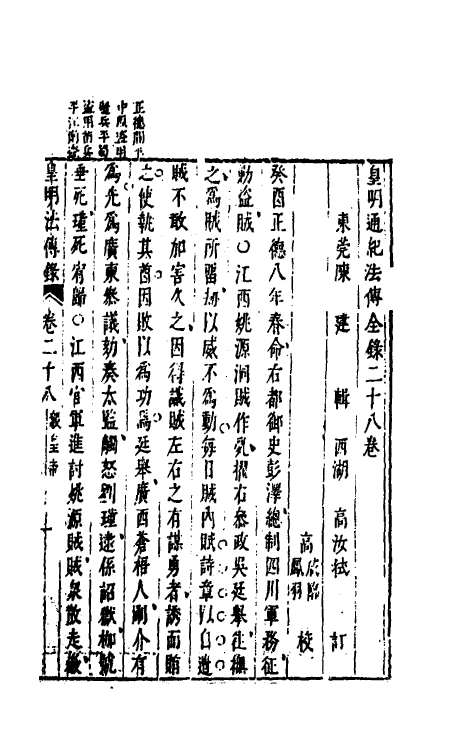 皇明通紀法傳全錄二十八卷
東莞陳 建 輯 西湖 高汝栻 訂
高 校
癸酉正德八年春命右都御史彭澤總制四川軍務征
勦盜賊○江西姚源洞賊作亂擢右參政吳廷舉往撫
之爲賊所留刼以威不爲動每日賊內賦詩章以自遣
賊不敢加害久之因得識賊左右之有謀勇者誘而賄
之使執其酋因敗以爲功焉廷舉廣西蒼梧人剛介有
爲先爲廣東參議劾奏太監觸怒劉瑾逮係詔獄枷號
垂死瑾死宥歸○江西官軍進討姚源賊賊衆散走徽
皇明法傳錄 卷二十八 毅皇帝 一
正德間
中原盜用
邊兵平蜀
盜用苗兵
平江西盜